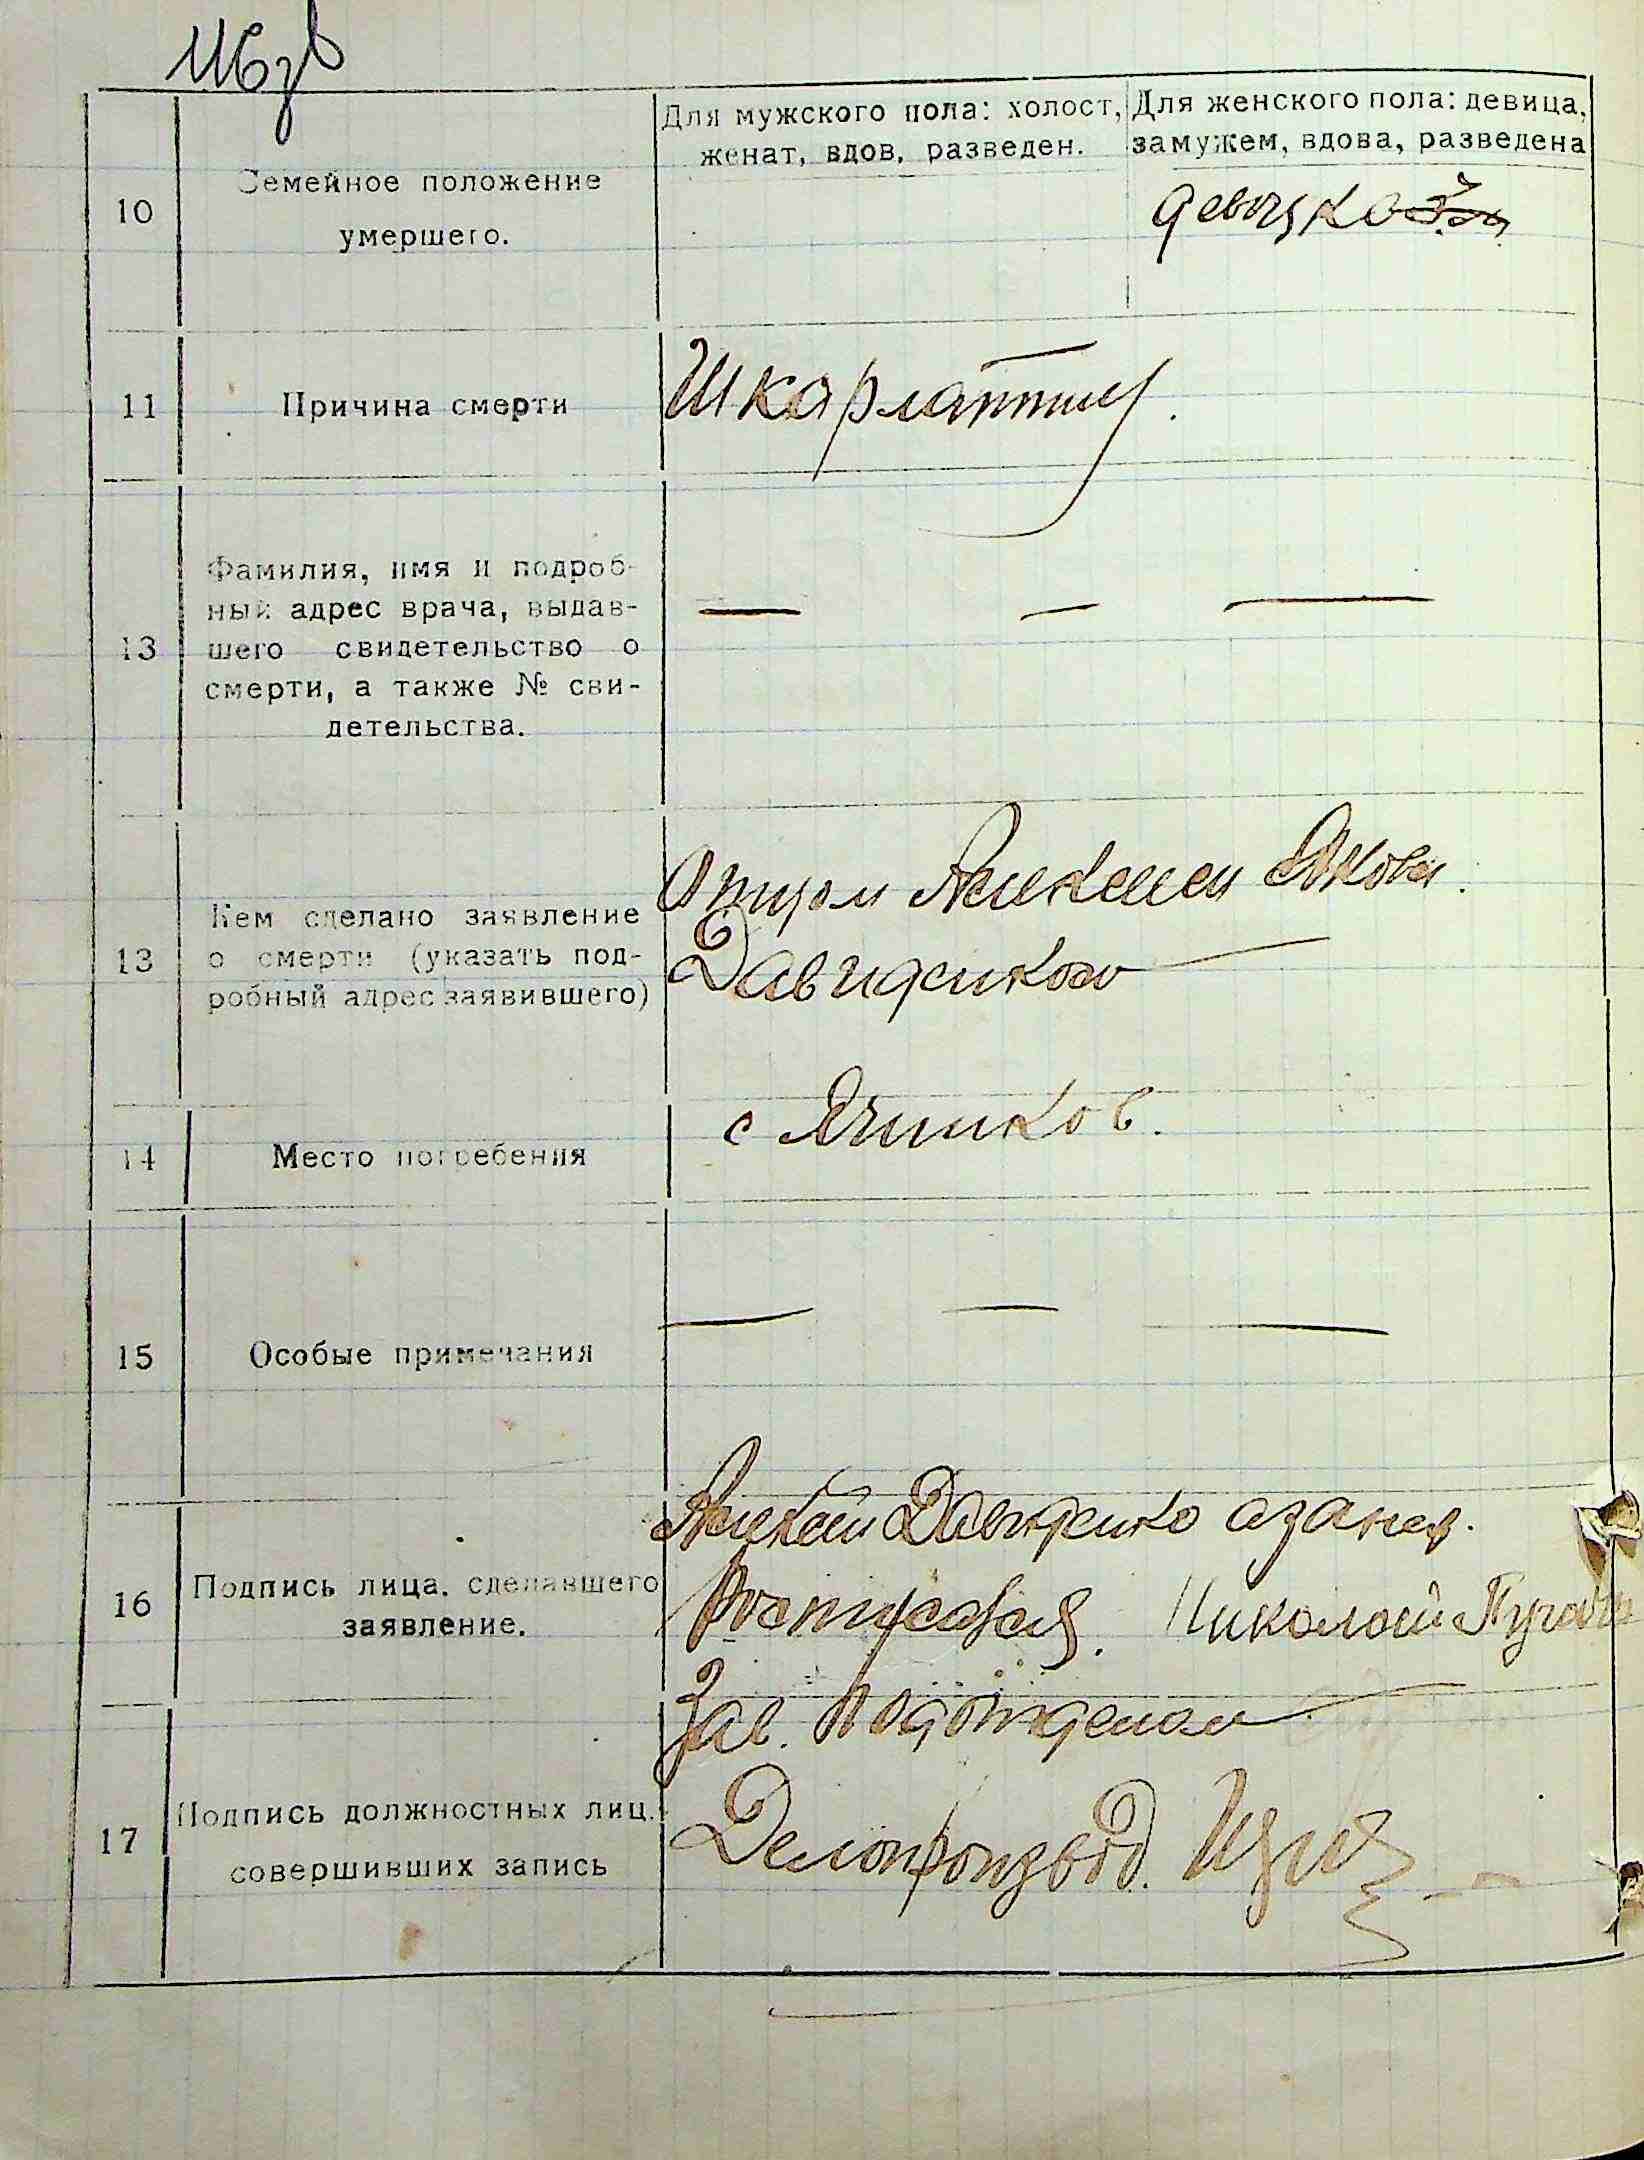 116 зв
Для мужского пола: холост,
женат, вдов, разведен.
Для женского пола: девица,
замужем, вдова, разведена
10
Семейное положение
умершего.
девочка
11
Причина смерти
Шкарлатины.
13
Фамилия, имя и подроб-
ный адрес врача, выдав-
шего свидетельство о
смерти, а также № сви-
детельства.
— — —
13
Кем сделано заявление
о смерти (указать под-
робный адрес заявившего)
Отцом Алексеем Яковл.
Давиденком
14
Место погребения
с Ячников.
15
Особые примечания
— — —
16
Подпись лица, сделавшего
заявление.
Алексей Давиденко а за нег.
Николай
17
Подпись должностных лиц,
совершивших запись
Зав. Подотделом
Делопроизвод.